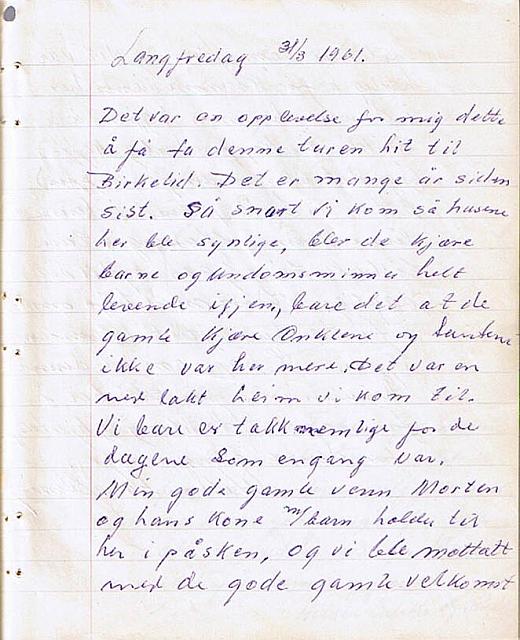 Langfredag 31/3 1961.
Det var en opplevelse for mig dette
å få ta denne turen hit til
Birkelid. Det er mange år siden
sist. Så snart vi kom så husene
her ble synlige, blev de kjære
barne og undomsminner helt
levende igjen, bare det at de
gamle kjære Onklene og tantene
ikke var her mere. Det var en
ned lakt heim vi kom til.
Vi bare er takknemlige for de
dagene som engang var.
Min gode gamle venn Morten
og hans kone m/barn holder til
her i påsken, og vi ble mottatt
med de gode gamle velkomst